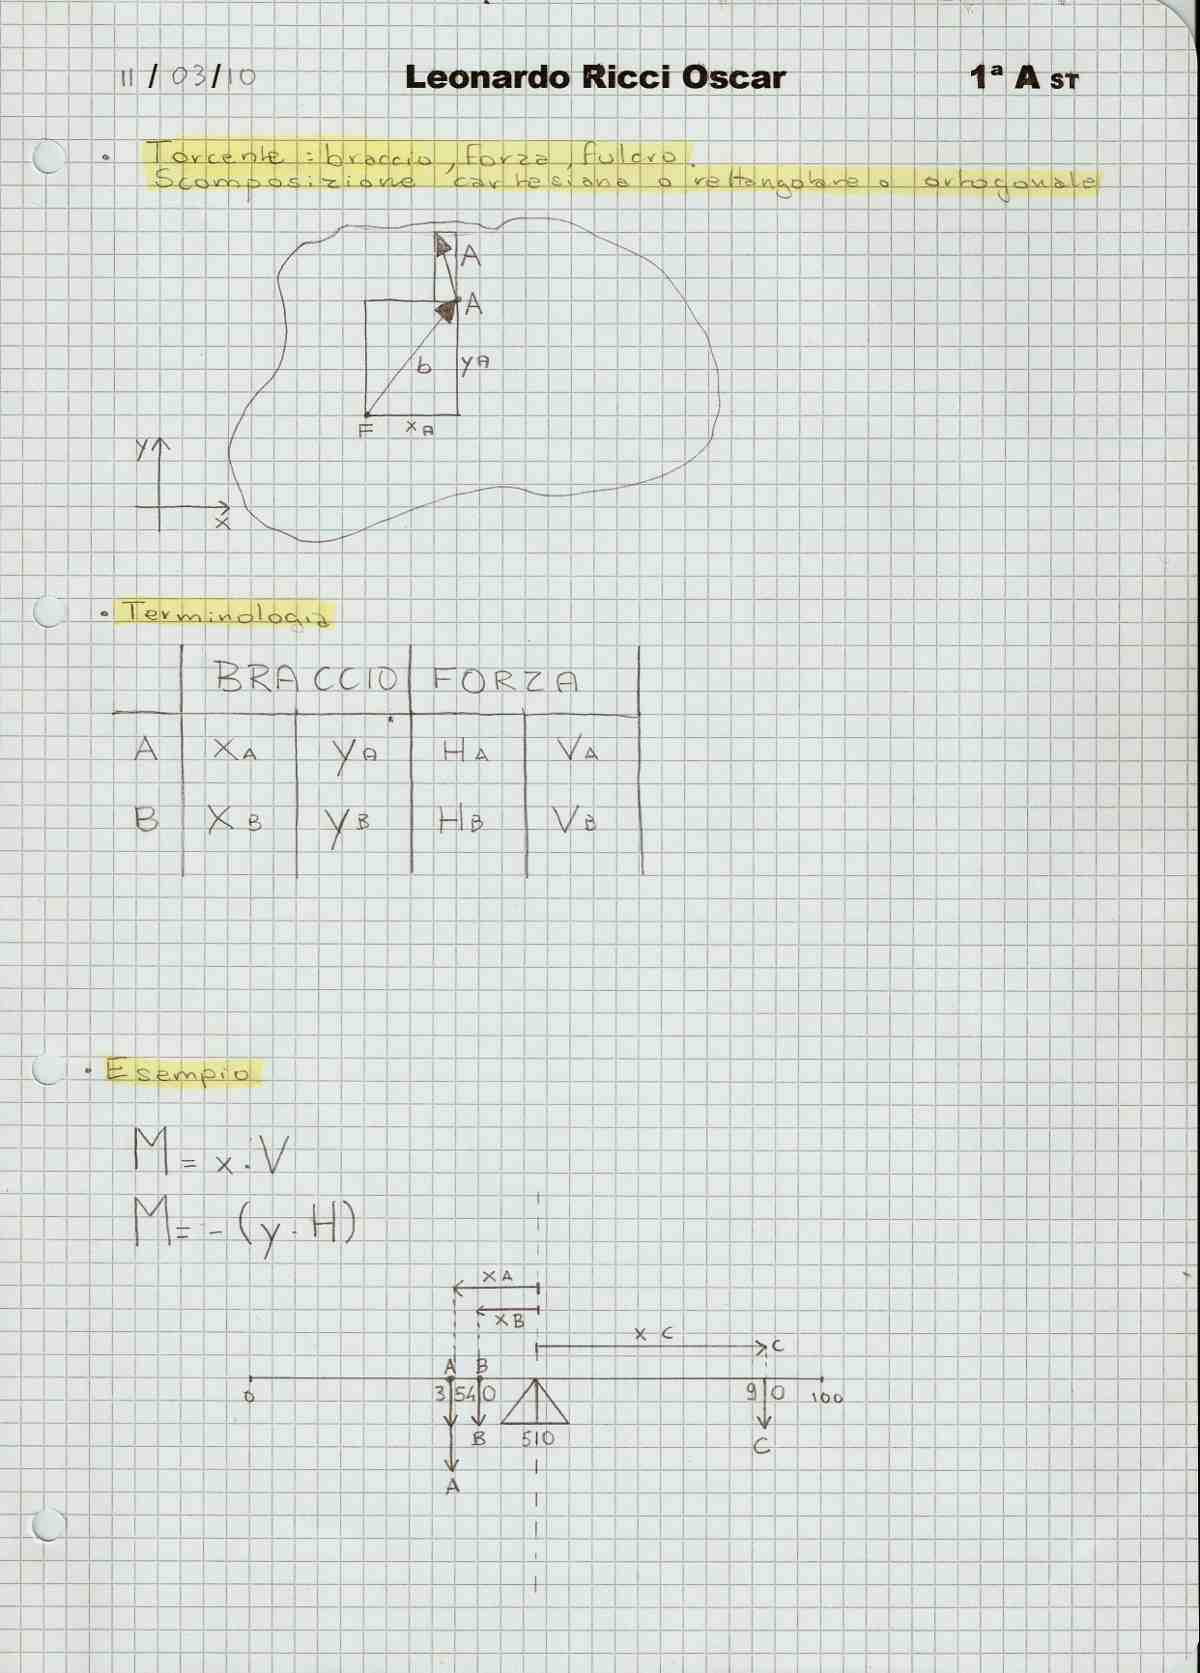 11/03/10 Leonardo Ricci Oscar 1ª A ST
• Torcente : braccio, forza, fulcro.
Scomposizione cartesiana o rettangolare o ortogonale
A
A
b yA
F xA
y
x
• Terminologia
BRACCIO FORZA
A xA yA HA VA
B xB yB HB VB
• Esempio
M = x . V
M = - (y . H)
xA
xB
x C
C
A B
0 35 40 90 100
B 510 C
A